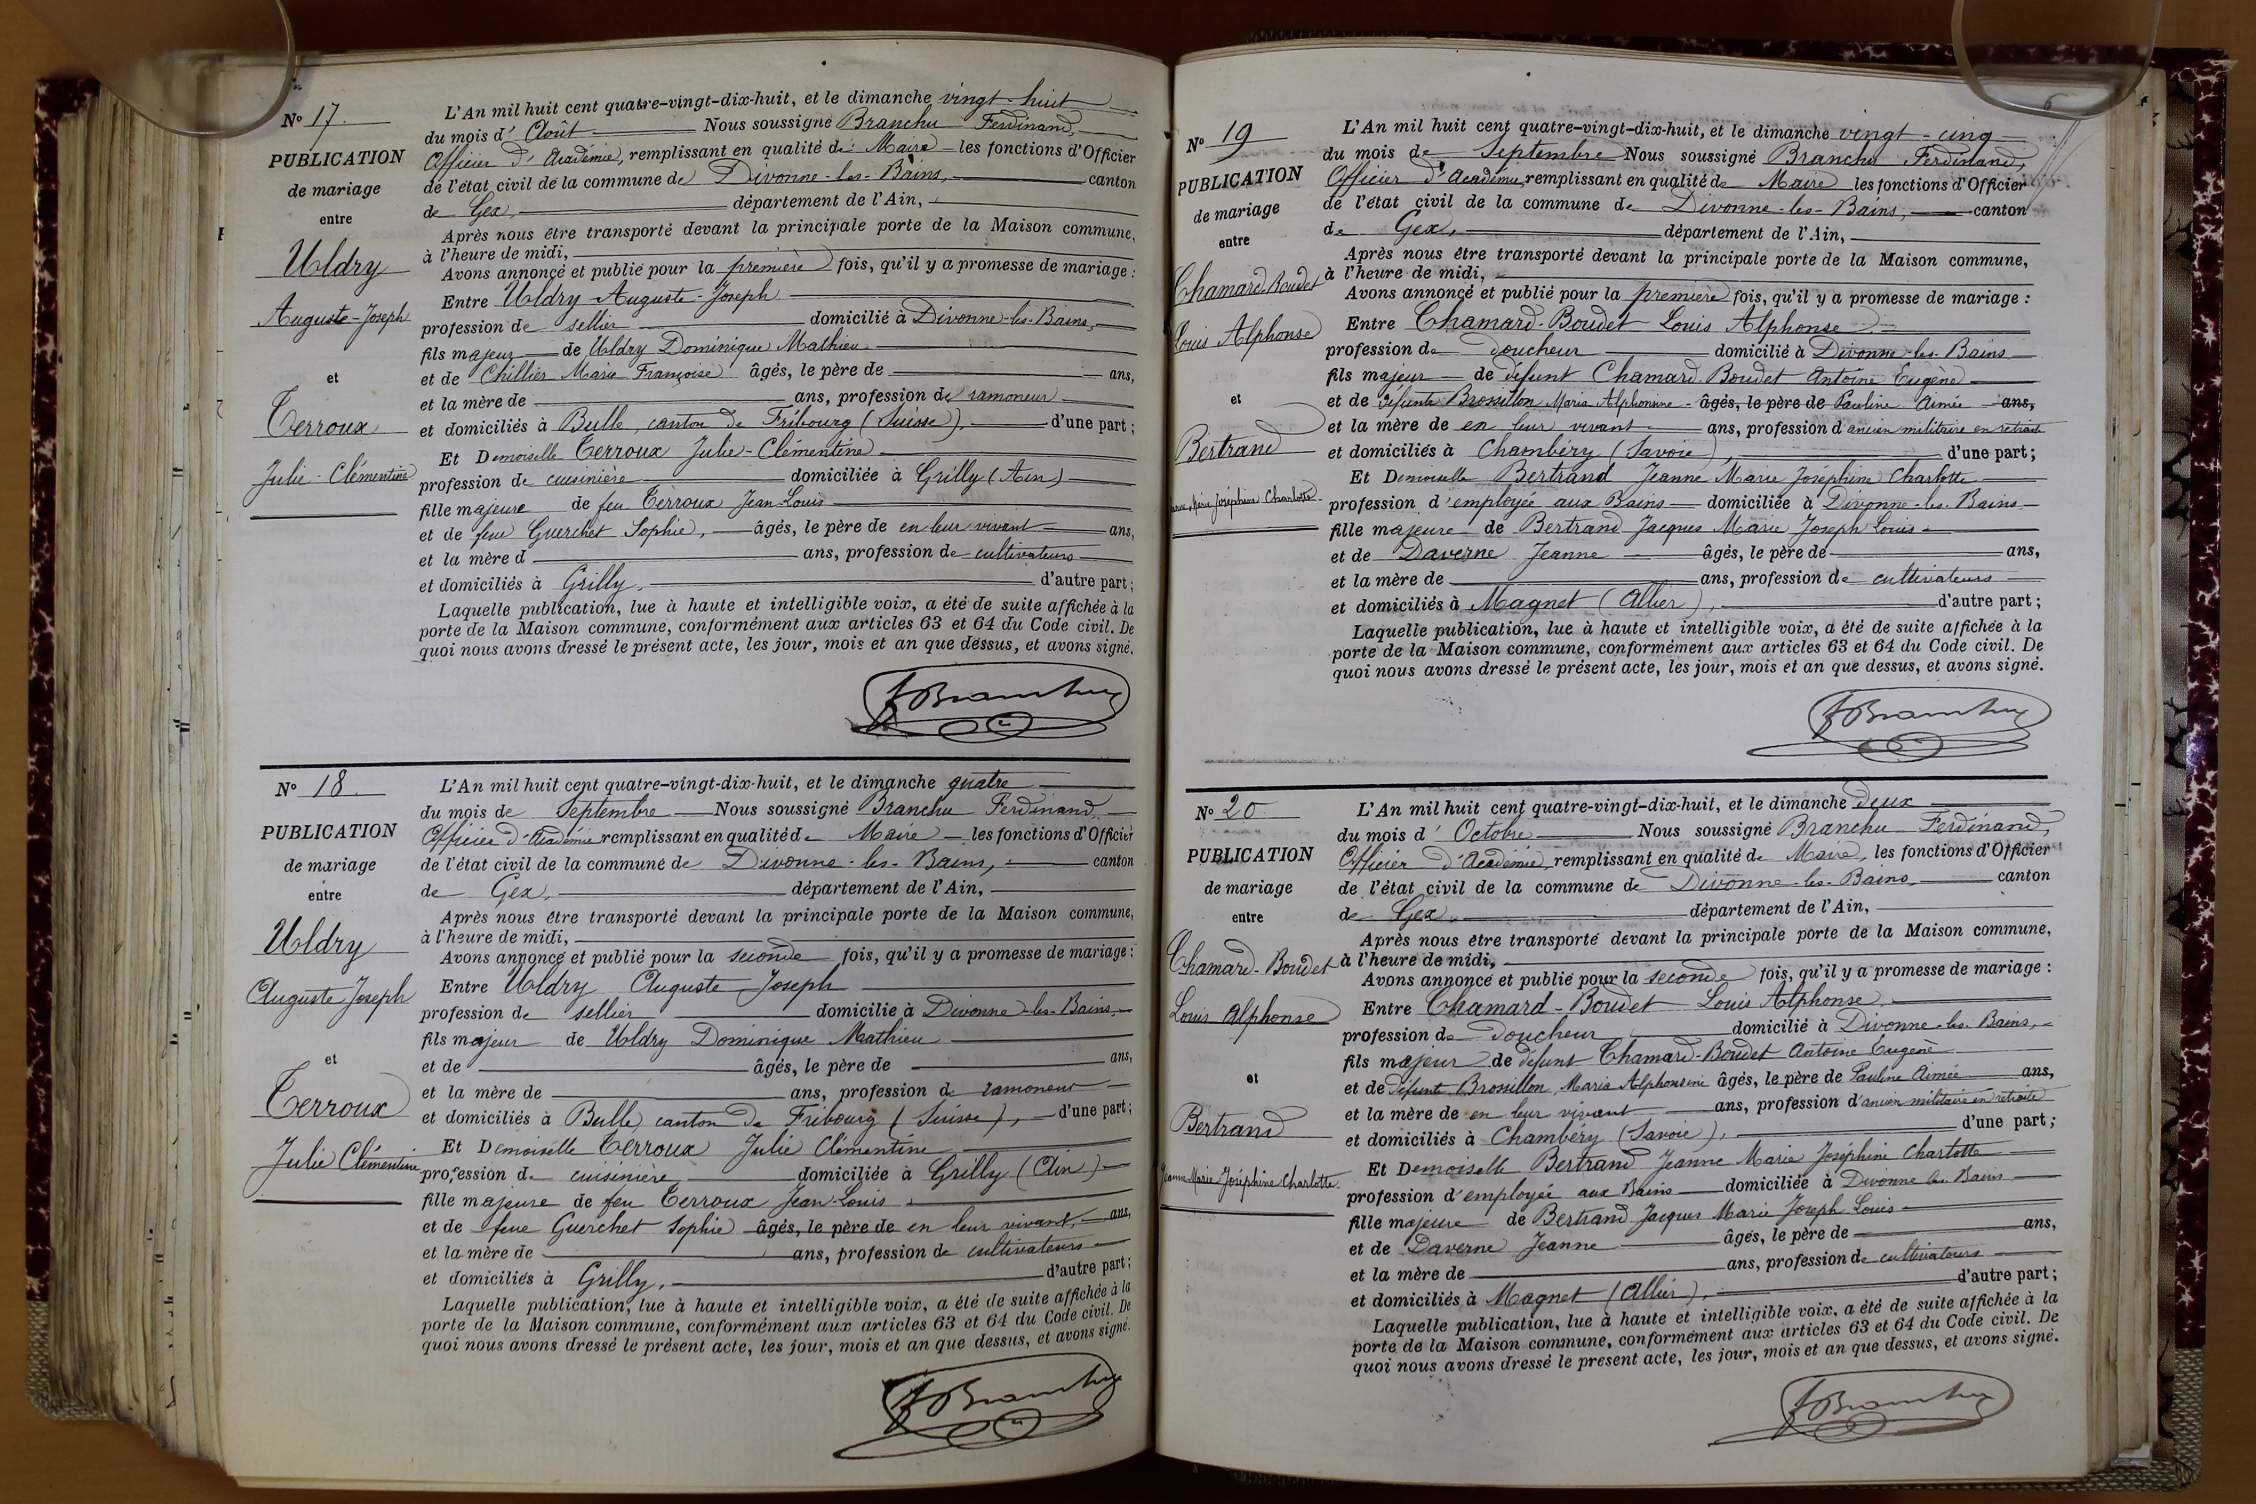 Nº 17
PUBLICATION
de mariage
entre
Uldry
Auguste-Joseph
et
Terroux
Julie-Clémentine
L'An mil huit cent quatre-vingt-dix-huit, et le dimanche vingt-huit
du mois d'Août Nous soussigné Branchu Ferdinand,
Officier d'Académie, remplissant en qualité de Maire les fonctions d'Officier
de l'état civil de la commune de Divonne-les-Bains, canton
de Gex, département de l'Ain,
Après nous être transporté devant la principale porte de la Maison commune,
à l'heure de midi,
Avons annoncé et publié pour la première fois, qu'il y a promesse de mariage :
Entre Uldry Auguste-Joseph
profession de sellier domicilié à Divonne-les-Bains,
fils majeur de Uldry Dominique Mathieu
et de Chillier Marie Françoise âgés, le père de ans,
et la mère de ans, profession de ramoneur
et domiciliés à Bulle, canton de Fribourg (Suisse), d'une part ;
Et Demoiselle Terroux Julie-Clémentine
profession de cuisinière domiciliée à Grilly (Ain)
fille majeure de feu Terroux Jean-Louis
et de feue Guerchet Sophie, âgés, le père de en leur vivant ans,
et la mère d ans, profession de cultivateurs
et domiciliés à Grilly, d'autre part ;
Laquelle publication, lue à haute et intelligible voix, a été de suite affichée à la
porte de la Maison commune, conformément aux articles 63 et 64 du Code civil. De
quoi nous avons dressé le présent acte, les jour, mois et an que dessus, et avons signé.
F Branchu
Nº 18
PUBLICATION
de mariage
entre
Uldry
Auguste Joseph
et
Terroux
Julie Clémentine
L'An mil huit cent quatre-vingt-dix-huit, et le dimanche quatre
du mois de Septembre Nous soussigné Branchu Ferdinand,
Officier d'Académie remplissant en qualité de Maire les fonctions d'Officier
de l'état civil de la commune de Divonne-les-Bains, canton
de Gex, département de l'Ain,
Après nous être transporté devant la principale porte de la Maison commune,
à l'heure de midi,
Avons annoncé et publié pour la seconde fois, qu'il y a promesse de mariage :
Entre Uldry Auguste Joseph
profession de sellier domicilié à Divonne-les-Bains,
fils majeur de Uldry Dominique Mathieu
et de âgés, le père de ans,
et la mère de ans, profession de ramoneur
et domiciliés à Bulle canton de Fribourg (Suisse), d'une part ;
Et Demoiselle Terroux Julie Clémentine
profession de cuisinière domiciliée à Grilly (Ain)
fille majeure de feu Terroux Jean-Louis
et de feue Guerchet Sophie âgés, le père de en leur vivant, ans,
et la mère de ans, profession de cultivateurs
et domiciliés à Grilly, d'autre part ;
Laquelle publication, lue à haute et intelligible voix, a été de suite affichée à la
porte de la Maison commune, conformément aux articles 63 et 64 du Code civil. De
quoi nous avons dressé le présent acte, les jour, mois et an que dessus, et avons signé.
F Branchu
6
Nº 19
PUBLICATION
de mariage
entre
Chamard-Boudet
Louis Alphonse
et
Bertrand
Jeanne Marie Joséphine Charlotte
L'An mil huit cent quatre-vingt-dix-huit, et le dimanche vingt-cinq
du mois de Septembre Nous soussigné Branchu Ferdinand,
Officier d'Académie, remplissant en qualité de Maire les fonctions d'Officier
de l'état civil de la commune de Divonne-les-Bains, canton
de Gex, département de l'Ain,
Après nous être transporté devant la principale porte de la Maison commune,
à l'heure de midi,
Avons annoncé et publié pour la première fois, qu'il y a promesse de mariage :
Entre Chamard-Boudet Louis Alphonse
profession de doucheur domicilié à Divonne-les-Bains
fils majeur de défunt Chamard-Boudet Antoine Eugène
et de défunte Brosillon Maria Alphonsine âgés, le père de Pauline Aimée ans,
et la mère de en leur vivant ans, profession d'ancien militaire en retraite
et domiciliés à Chambéry (Savoie), d'une part ;
Et Demoiselle Bertrand Jeanne Marie Joséphine Charlotte
profession d'employée aux Bains domiciliée à Divonne-les-Bains
fille majeure de Bertrand Jacques Marie Joseph Louis
et de Daverne Jeanne âgés, le père de ans,
et la mère de ans, profession de cultivateurs
et domiciliés à Magnet (Allier), d'autre part ;
Laquelle publication, lue à haute et intelligible voix, a été de suite affichée à la
porte de la Maison commune, conformément aux articles 63 et 64 du Code civil. De
quoi nous avons dressé le présent acte, les jour, mois et an que dessus, et avons signé.
F Branchu
Nº 20
PUBLICATION
de mariage
entre
Chamard-Boudet
Louis Alphonse
et
Bertrand
Jeanne Marie Joséphine Charlotte
L'An mil huit cent quatre-vingt-dix-huit, et le dimanche deux
du mois d'Octobre Nous soussigné Branchu Ferdinand,
Officier d'Académie, remplissant en qualité de Maire, les fonctions d'Officier
de l'état civil de la commune de Divonne-les-Bains, canton
de Gex, département de l'Ain,
Après nous être transporté devant la principale porte de la Maison commune,
à l'heure de midi,
Avons annoncé et publié pour la seconde fois, qu'il y a promesse de mariage :
Entre Chamard-Boudet Louis Alphonse
profession de doucheur domicilié à Divonne-les-Bains,
fils majeur de défunt Chamard-Boudet Antoine Eugène
et de défunte Brosillon Maria Alphonsine âgés, le père de Pauline Aimée ans,
et la mère de en leur vivant ans, profession d'ancien militaire en retraite
et domiciliés à Chambéry (Savoie), d'une part ;
Et Demoiselle Bertrand Jeanne Marie Joséphine Charlotte
profession d'employée aux Bains domiciliée à Divonne-les-Bains
fille majeure de Bertrand Jacques Marie Joseph Louis
et de Daverne Jeanne âgés, le père de ans,
et la mère de ans, profession de cultivateurs
et domiciliés à Magnet (Allier), d'autre part ;
Laquelle publication, lue à haute et intelligible voix, a été de suite affichée à la
porte de la Maison commune, conformément aux articles 63 et 64 du Code civil. De
quoi nous avons dressé le présent acte, les jour, mois et an que dessus, et avons signé.
F Branchu